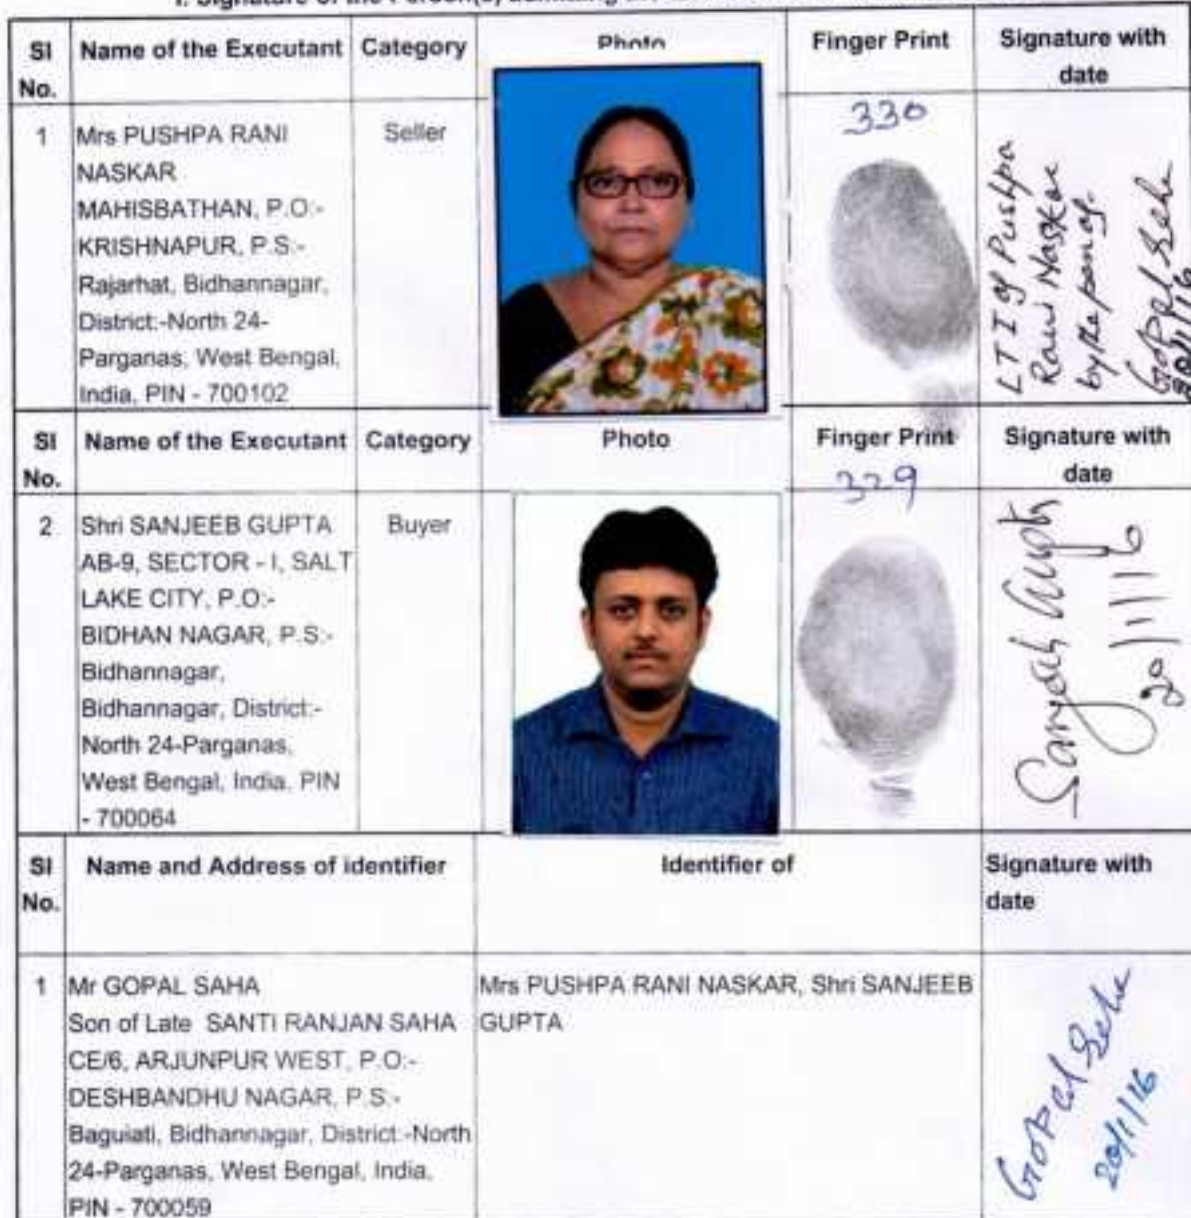 I. Signature of the Person(s) admitting
SI No. Name of the Executant Category Photo Finger Print Signature with date
1 Mrs PUSHPA RANI NASKAR
MAHISBATHAN, P.O:-
KRISHNAPUR, P.S:-
Rajarhat, Bidhannagar,
District:-North 24-
Parganas, West Bengal,
India, PIN - 700102
Seller
330
LTI of Pushpa
Rani Naskar
by the pen of.
Gopal Saha
20/1/16
SI No. Name of the Executant Category Photo Finger Print Signature with date
2 Shri SANJEEB GUPTA
AB-9, SECTOR - I, SALT
LAKE CITY, P.O:-
BIDHAN NAGAR, P.S:-
Bidhannagar,
Bidhannagar, District:-
North 24-Parganas,
West Bengal, India, PIN
- 700064
Buyer
329
Sanjeeb Gupta
20/1/16
SI No. Name and Address of identifier Identifier of Signature with date
1 Mr GOPAL SAHA
Son of Late SANTI RANJAN SAHA
CE/6, ARJUNPUR WEST, P.O:-
DESHBANDHU NAGAR, P.S:-
Baguiati, Bidhannagar, District:-North
24-Parganas, West Bengal, India,
PIN - 700059
Mrs PUSHPA RANI NASKAR, Shri SANJEEB
GUPTA
Gopal Saha
20/1/16